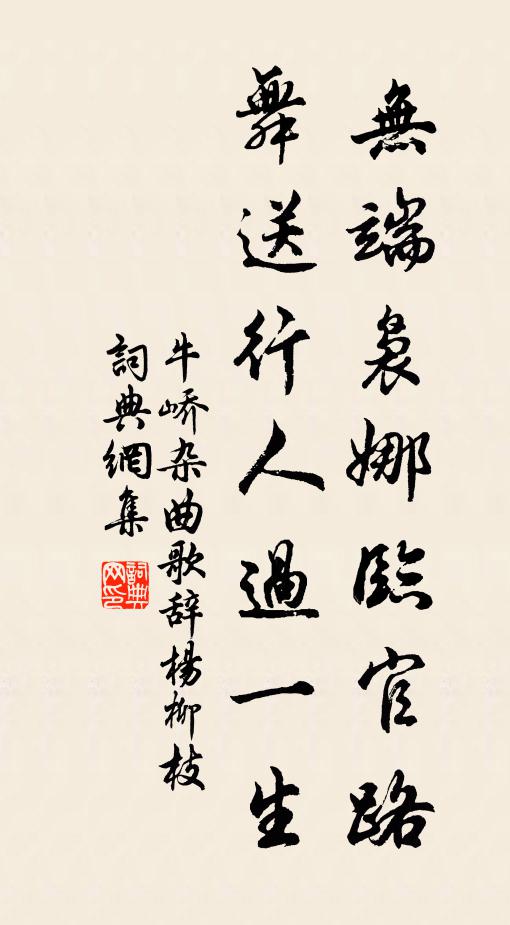 無端裊娜臨官路
舞送行人過一生
牛峤杂曲歌辞楊柳枝
詞典網集
詞典
网印